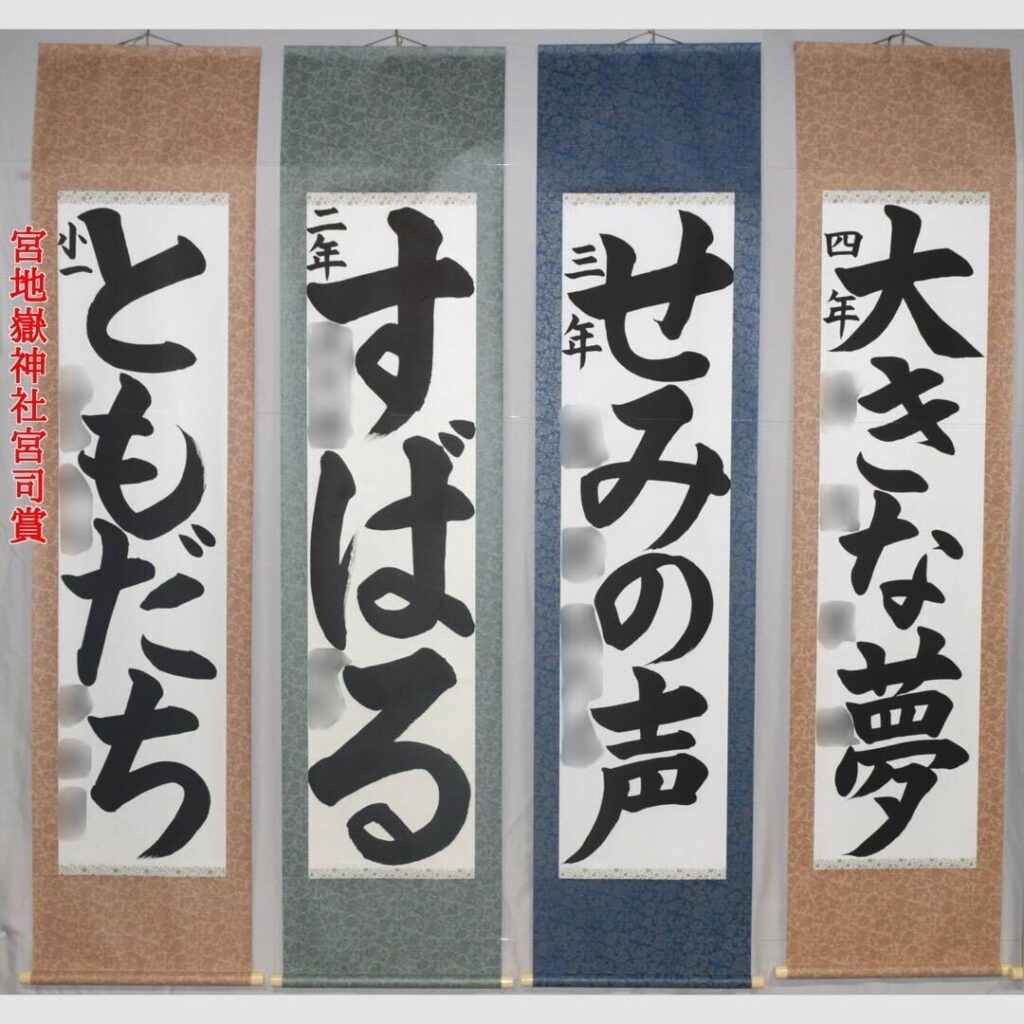 宮地嶽神社宮司賞
小一
ともだち
二年
すばる
三年
せみの声
四年
大きな夢